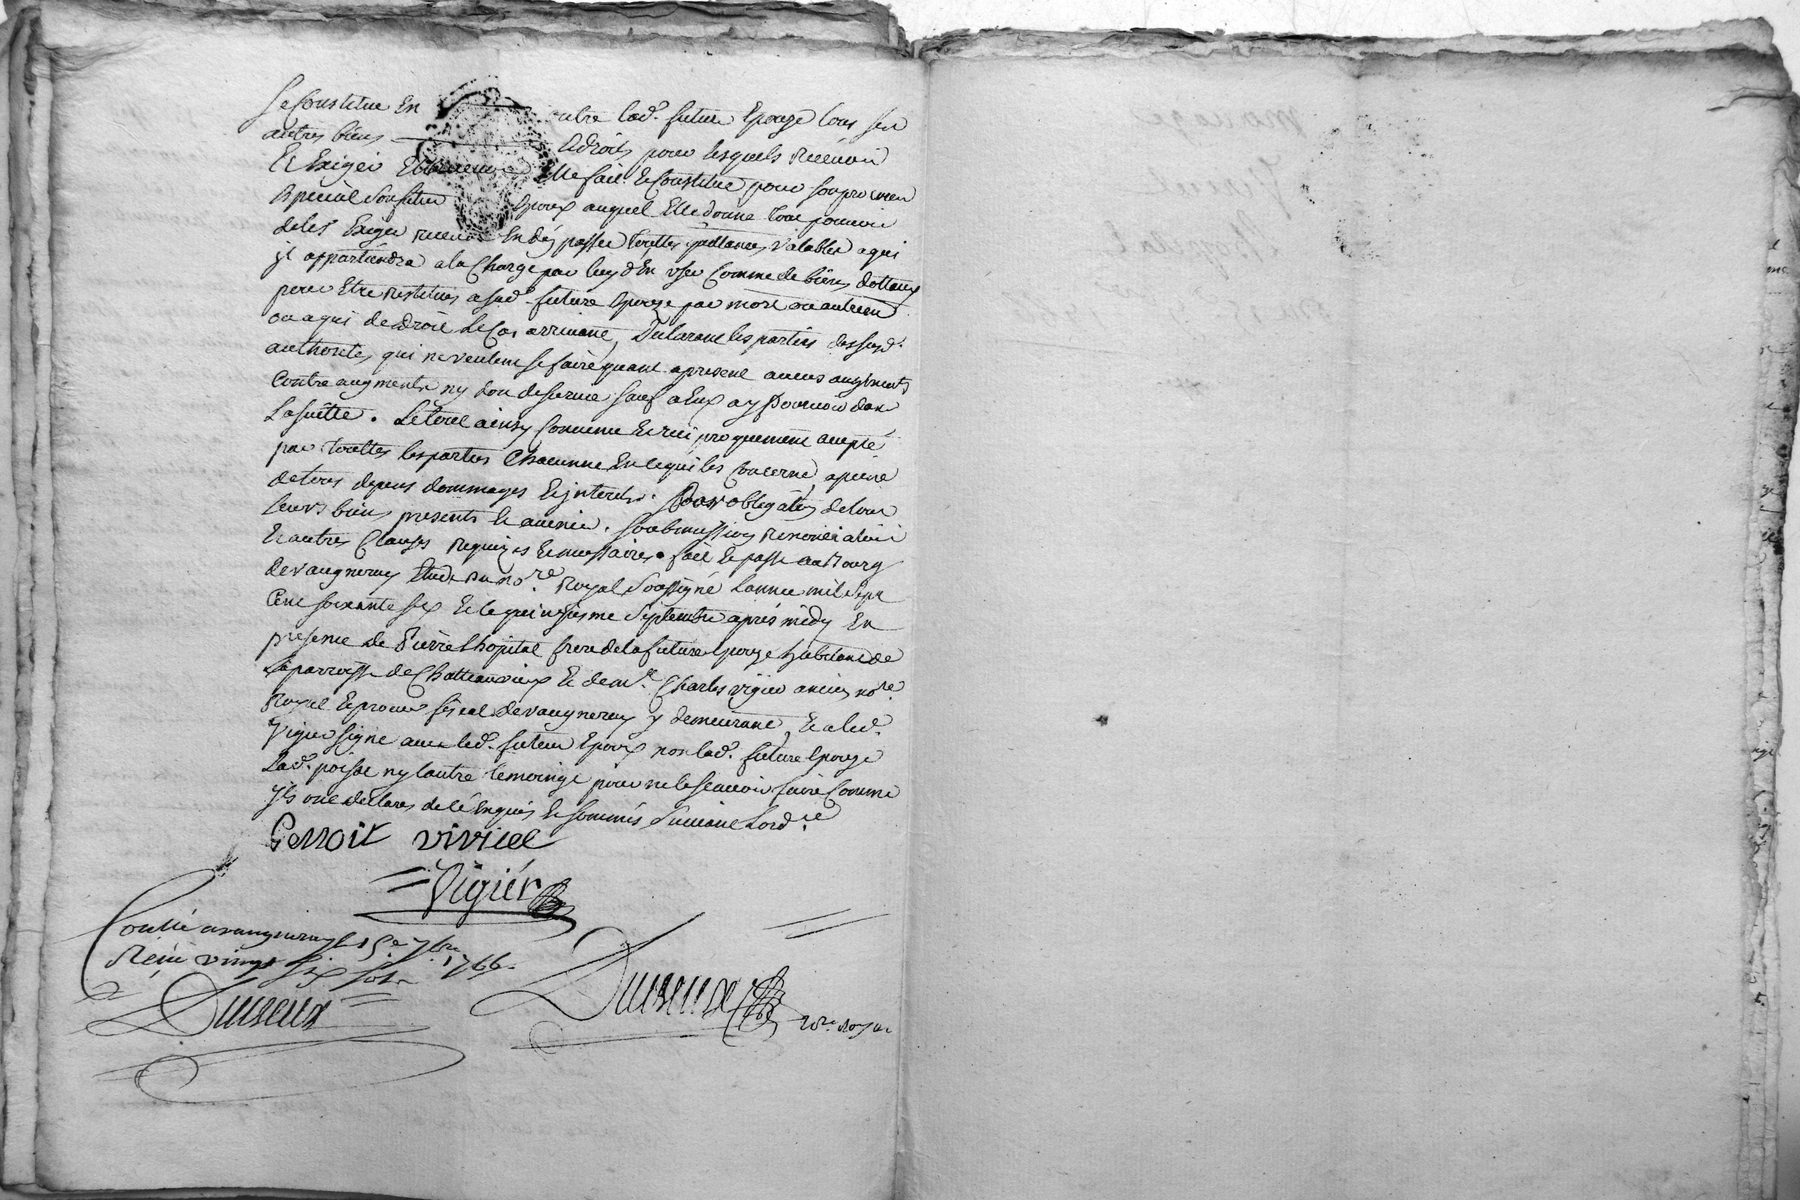 Se Constitue En outre lad.e future Epouze tous ses
autres biens Adroits pour lesquels recevoir
Et Exiger Elle fait Et Constitue pour son procureur
Special Son futur Epoux auquel Elle donne tout pouvoir
deles Exiger recevoir En passer touttes quittances valables aqui
jl appartiendra ala Charge par luy d'En user Comme de biens dottaux
pour Etre restitués a sad.e future Epouze par mort ou autrement
ou aqui de droit le Cas arrivant, Declarant les parties dessusd.
authorité, qui ne veulent se faire quant apresent aucuns augments
Contre augments ny don de survie sauf a Eux a y Pourvoir dans
La suitte. Le tout ainsy Convenu Et reciproquement accepté
par touttes les parties Chacunne En ce qui les Concerne, apeine
de tous depens dommages Et jnterets. Par obligâôn de tous
leurs biens presents Et avenir. Soubmissions Renonciations
Et autres Clauses Requizes Et necessaires. fait Et passé au Bourg
de vaugneray Etude du no.re Royal Soussigné L'année mil Sept
Cent soixante six Et le quinziesme Septembre après midy En
presence de Pierre Lhôpital frere de la future Epouze habitant de
La parroisse de Chatteauvieux Et de m.e Charles vigier ancien no.re
Royal Et procur fiscal de vaugneray y demeurant, Et a led.
Vigier signé avec led. futeur Epoux non lad.e future Epouze
Lad.e ny lautre temoings pour ne le scavoir faire Comme
jls ont déclarés de ce Enquis Et sommés Suivant Lord.ce
Benoit vivier
Vigiér
Conllé a vaugneray le 15.e 7bre 1766.
Reçu vingt Six Sols
Duiseux
Duiseux
no.re royal
mariage
Lhopital